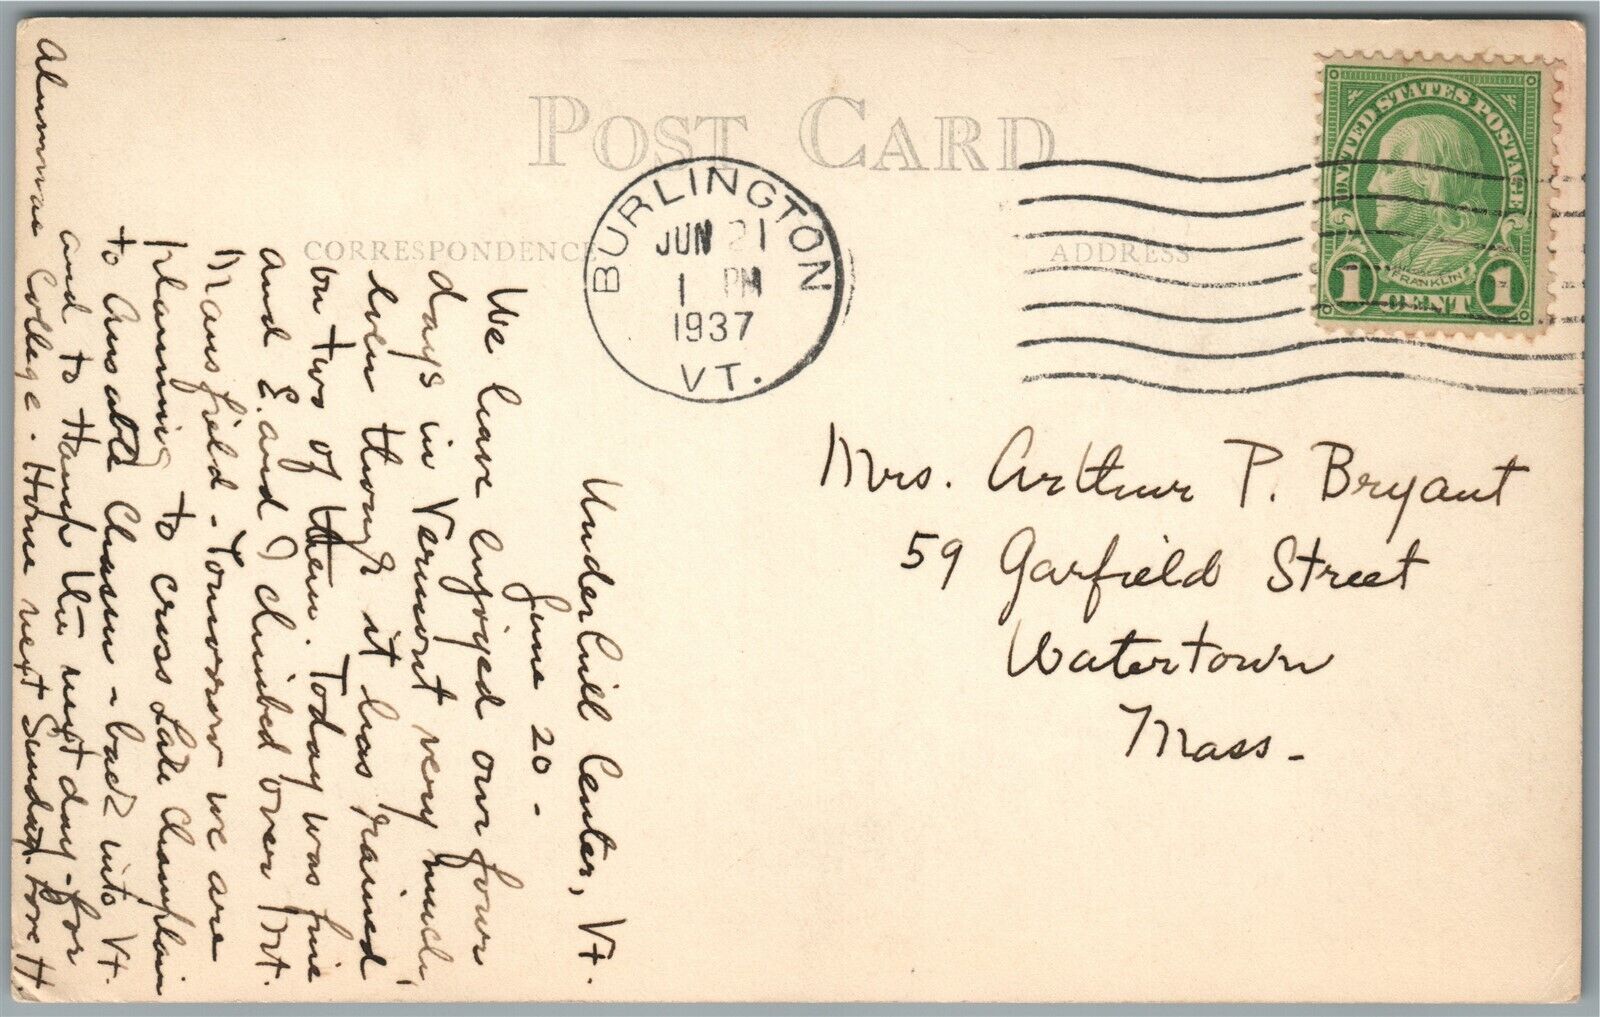 POST CARD
CORRESPONDENCE
ADDRESS
BURLINGTON
JUN 21
1 PM
1937
VT.
UNITED STATES POSTAGE
FRANKLIN
1 CENT 1
Mrs. Arthur P. Bryant
59 Garfield Street
Watertown
Mass-
Underhill Center, Vt.
June 20-
We have enjoyed our four
days in Vermont very much,
even though it has rained
on two of them. Today was fine
and E. and I climbed over Mt.
Mansfield - Tomorrow we are
planning to cross Lake Champlain
to Ausable Chasm - back into Vt.
and to Hamp the next day - for
Alumnae College - Home next Sunday. Love H.